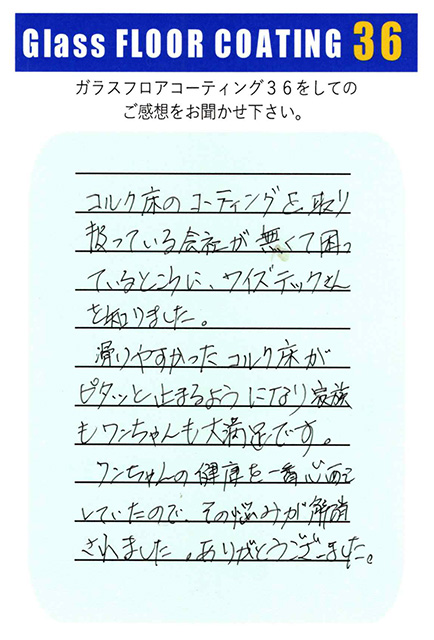 Glass FLOOR COATING 36
ガラスフロアコーティング３６をしての
ご感想をお聞かせ下さい。
コルク床のコーティングを取り
扱っている会社が無くて困っ
ているところに、ワイズテックさん
を知りました。
滑りやすかったコルク床が
ピタッと止まるようになり家族
もワンちゃんも大満足です。
ワンちゃんの健康を一番心配
していたので、その悩みが解消
されました。ありがとうございました。